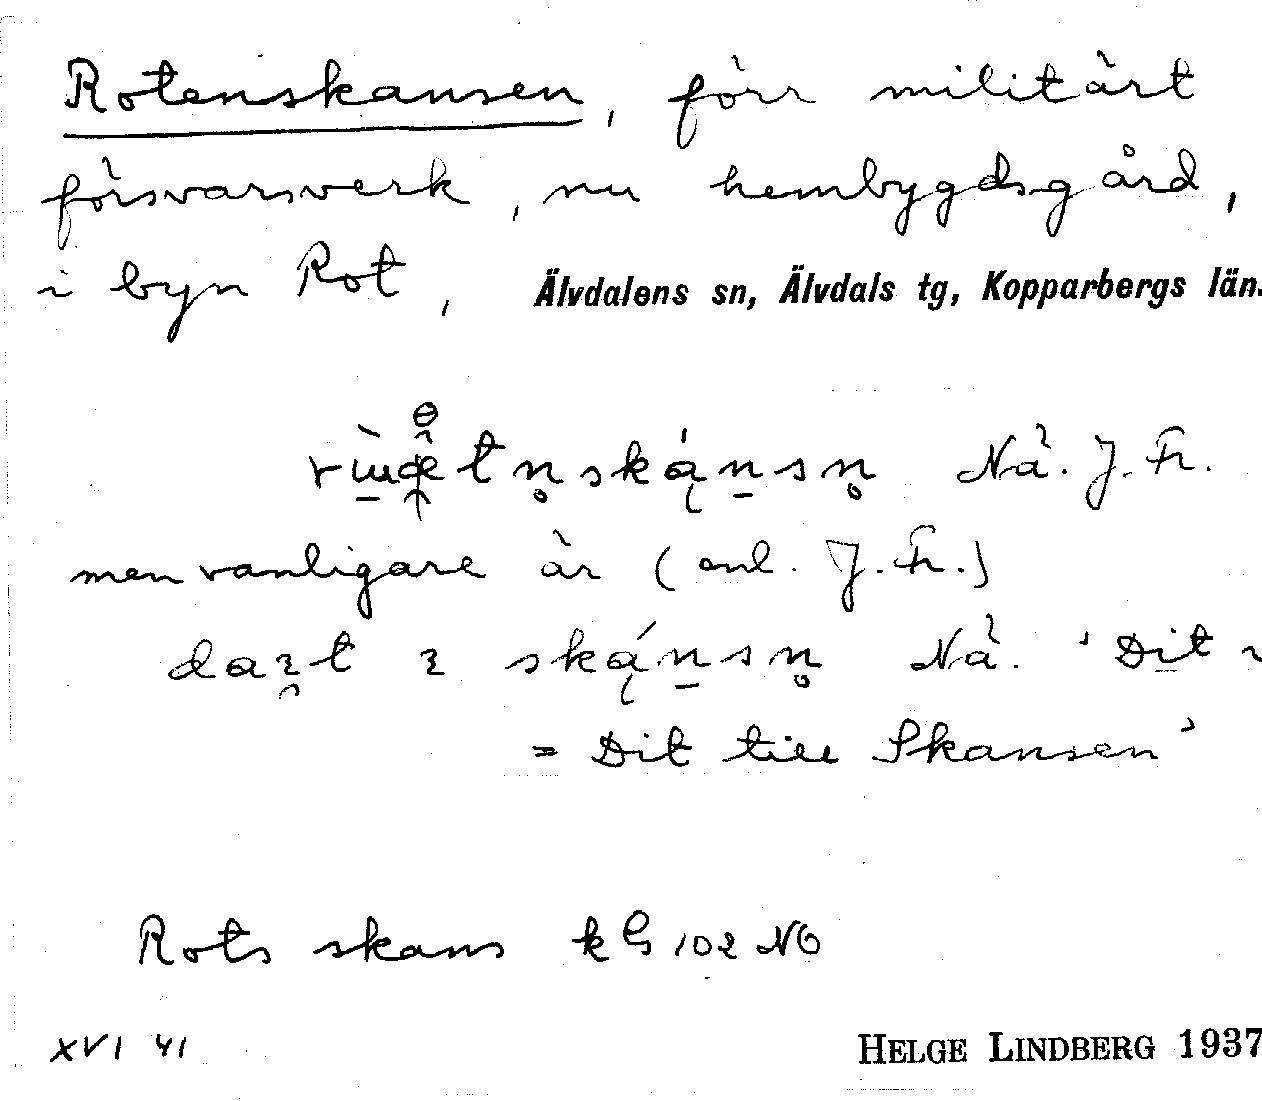 Rotenskansen, förr militärt
försvarsverk, nu hembygdsgård,
i byn Rot, Älvdalens sn, Älvdals tg, Kopparbergs län.
Nä. J. Fr.
men vanligare är (enl. J. Fr.)
Nä. 'Dit i
= Dit till Skansen'
Rots skans k G 102 NO
XVI 41
HELGE LINDBERG 1937